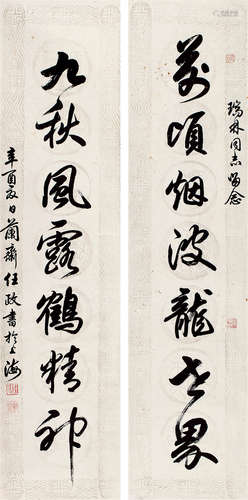 瑞林同志留念
萬頃烟波龍世界
九秋風露鶴精神
辛酉夏日蘭齋任政書於上海